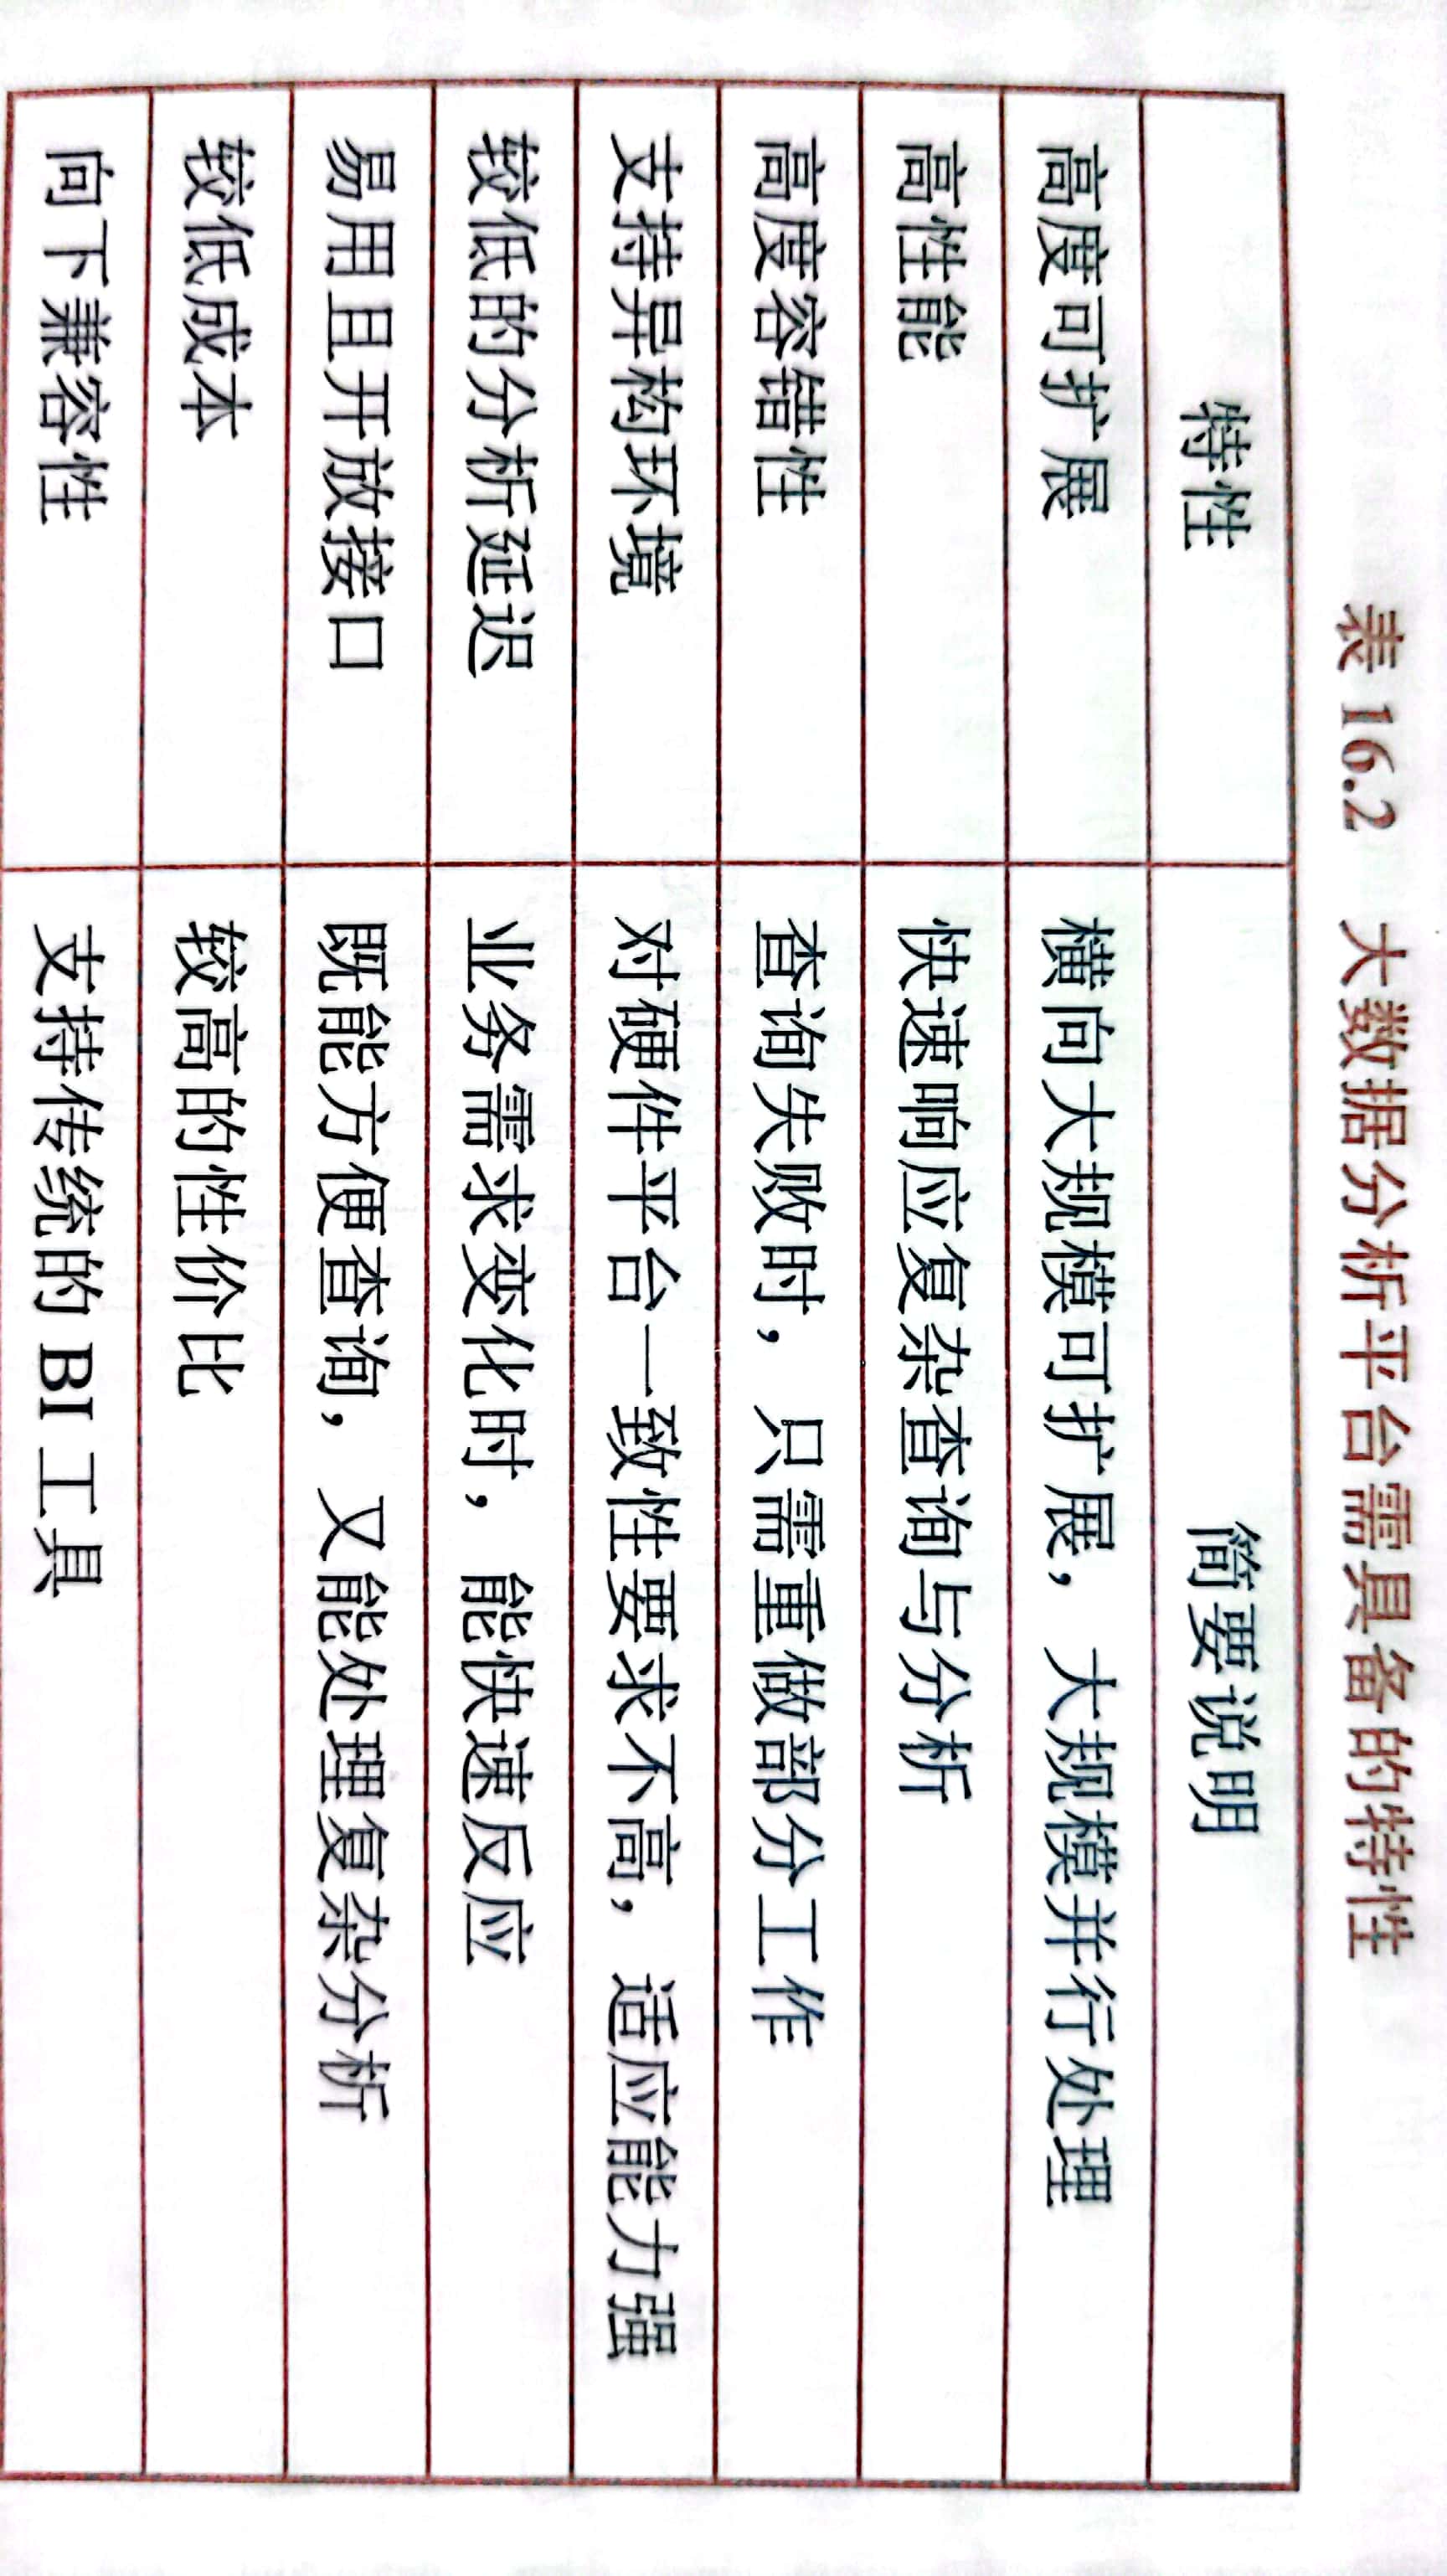 表 16.2 大数据分析平台需具备的特性
特性 简要说明
高度可扩展 横向大规模可扩展，大规模并行处理
高性能 快速响应复杂查询与分析
高度容错性 查询失败时，只需重做部分工作
支持异构环境 对硬件平台一致性要求不高，适应能力强
较低的分析延迟 业务需求变化时，能快速反应
易用且开放接口 既能方便查询，又能处理复杂分析
较低成本 较高的性价比
向下兼容性 支持传统的 BI 工具